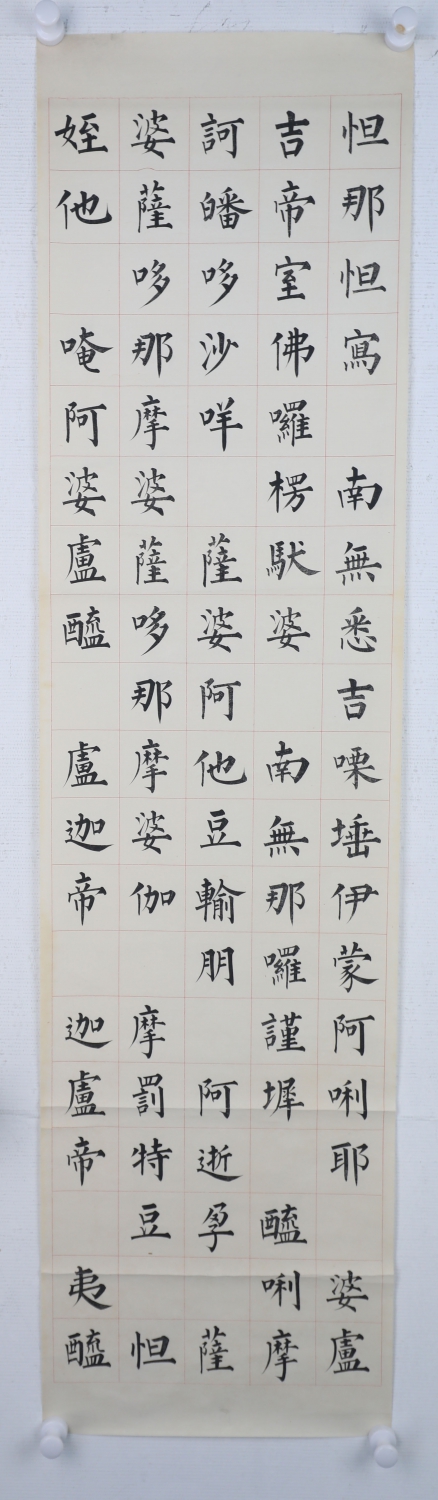 怛那怛寫 南無悉吉㗚埵伊蒙阿唎耶 婆盧
吉帝室佛囉楞馱婆 南無那囉謹墀 醯唎摩
訶皤哆沙咩 薩婆阿他豆輸朋 阿逝孕 薩
婆薩哆那摩婆薩哆那摩婆伽 摩罰特豆 怛
姪他 唵阿婆盧醯 盧迦帝 迦盧帝 夷醯